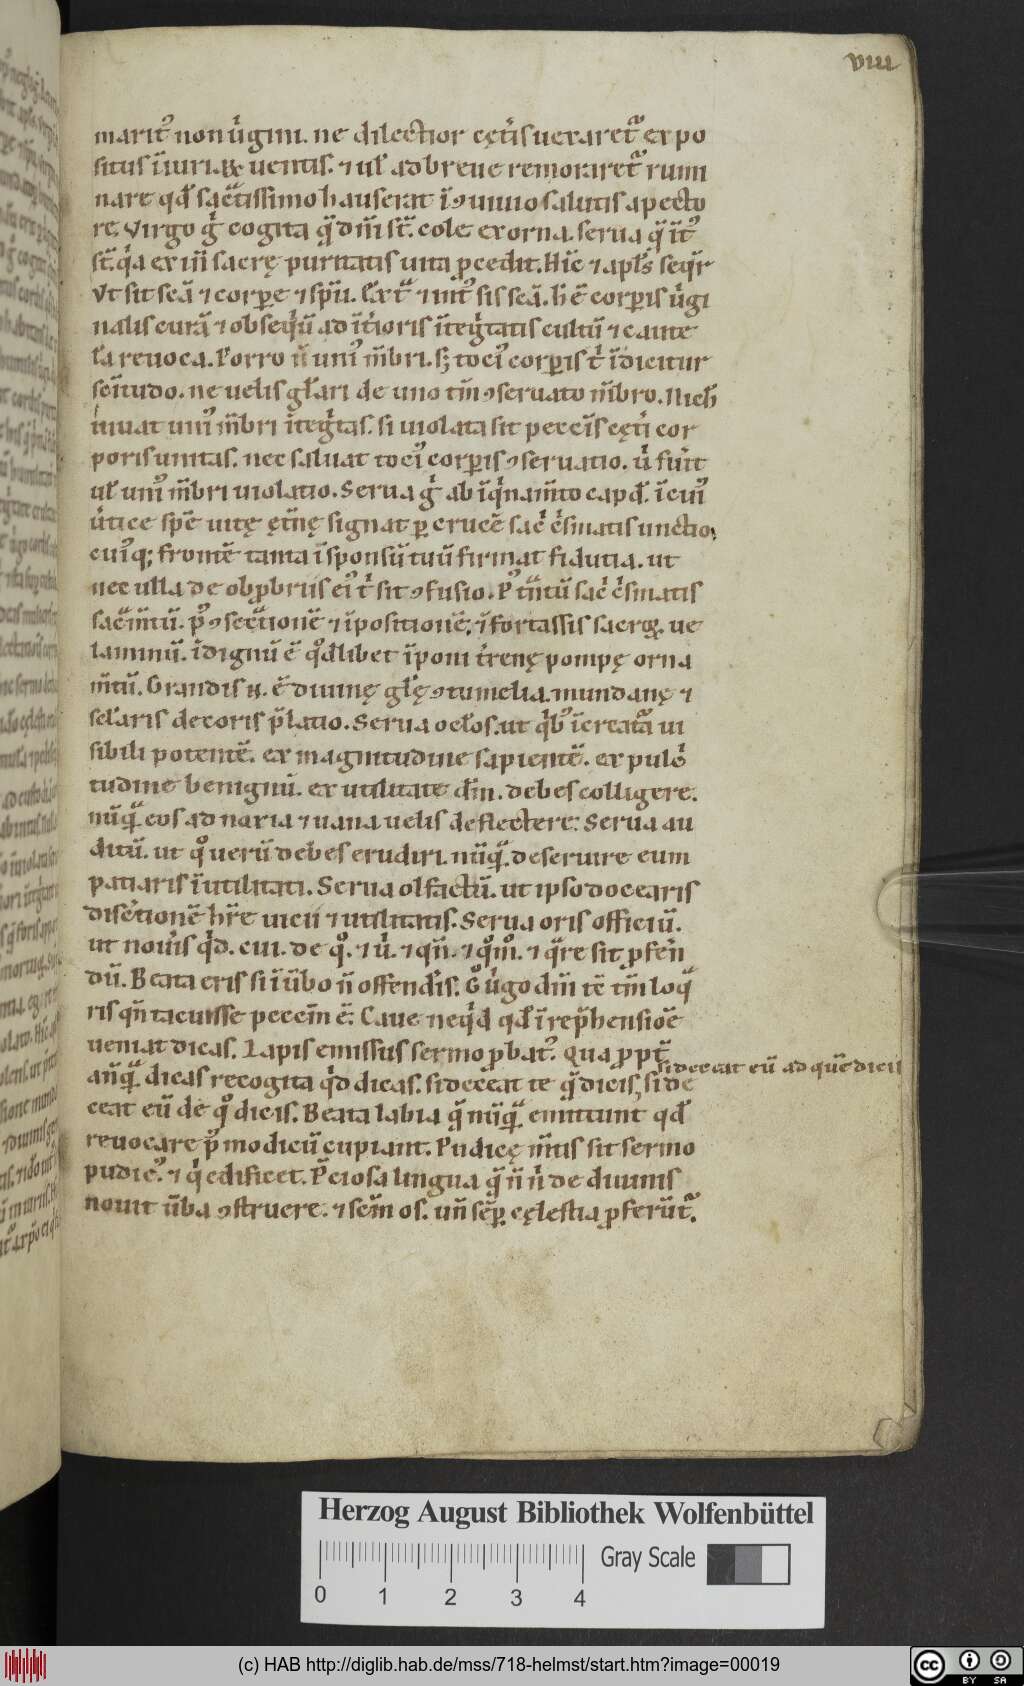 viii
marit᷒ non ũgini. ne dilectior cęt̃is uexaret᷑ expo
situs iniuriæ uentis. ⁊ ul̃ ad breue remoraret᷑ rumi
nare qd̃ sac̃tissimo hauserat ĩ ꝯuiuio salutis a pecto
re. Virgo g̃ cogita q̃ dñi st̃. cole exorna. serua q̃ ĩt᷒
st̃. q̃a ex iñ sacrę puritatis uita ꝓcedit. Hic̃ ⁊ apl̃s seq̃r
Vt sit sc̃a ⁊ corꝑe ⁊ sp̃u. Ext᷑ ⁊ int᷒ sis sc̃a. h̃ ẽ corꝑis ũgi
nalis curã ⁊ obseq̃ũ ad ĩt̃ioris ĩteg̃tatis cultũ ⁊ caute
lã reuoca. Porro ñ uni᷒ m̃bri. sꝫ toci᷒ corꝑis t̃ ĩdicitur
sc̃itudo. ne uelis gl̃ari de uno tm̃ ꝯseruato m̃bro. Nich̃
iuuat uni᷒ m̃bri ĩteg̃tas. si uiolata sit pecc̃is cęt̃i cor
poris unitas. nec saluat toci᷒ corꝑis ꝯseruatio. ũ fũit
ul̃ uni᷒ m̃bri uiolatio. Serua g̃ ab ĩq̃nam̃to capd̃. ĩ cui᷒
ũtice spẽ uitę ęt̃nę signat ꝑ crucẽ sac̃ c̃smatis unctio.
cui᷒q; frontẽ tanta ĩ sponsũ tuũ firmat fidutia. ut
nec ulla de obꝓbriis ei᷒ t̃ sit ꝯfusio. P᷒ tm̃tũ sac̃ c̃smatis
sac̃m̃tũ. p᷒ ꝯsec̃tionẽ ⁊ ĩpositionẽ. ĩ fortassis sacroꝝ. ue
laminũ. ĩdignũ ẽ q̊dlibet ĩponi t̃renę pompę orna
m̃tũ. Grandis .n. ẽ diuinę gl̃ę ꝯtumelia. mundanę ⁊
sel̃aris decoris p̃latio. Serua ocl̃os. ut q̃b᷒ ĩ creata᷑ ui
sibili potentẽ. ex magnitudine sapientẽ. ex pulc̃
tudine benignũ. ex utilitate dñm. debes colligere.
nũq̃. eos ad noxia ⁊ uana uelis deflectere. Serua au
ditũ. ut q̊ uerũ debes erudiri. nũq̃. deseruire eum
patiaris inutilitati. Serua olfactũ. ut ipso docearis
disc̃tionẽ hr̃e uicii ⁊ utilitatis. Serua oris officiũ.
ut noũis q̃d. cui. de q̊. ⁊ ũ. ⁊ qñ. ⁊ q̊m̊. ⁊ q̃re sit ꝓfen̄
dũ. Beata eris si ĩ ũbo ñ offend̃is. G̊ ũgo dñi tẽ tm̃ loq̃
ris qñ tacuisse peccm̃ ẽ. Caue neq̃d qd̃ ĩ rep̃hensioẽ
ueniat dicas. Lapis emissus sermo ꝓbat᷒. Qua ꝓpt̃
añq̃ dicas recogita q̃d dicas. si deceat te q̃ dicis, si de
si deceat eũ ad quẽ dicis
ceat eũ de q̊ dicis. Beata labia q̃ nũq̃ emittunt qd̃
reuocare p̃ modicũ cupiant. Pudicę m̃tis sit sermo
pudic᷒. ⁊ q̃ edificet. P̃ciosa lingua q̃ ñ n̄ de diuinis
nouit ũba ꝯstruere. ⁊ sc̃m os. uñ sẽꝑ cęlestia ꝓferũt᷑.
Herzog August Bibliothek Wolfenbüttel
0 1 2 3 4 Gray Scale
(c) HAB http://diglib.hab.de/mss/718-helmst/start.htm?image=00019
cc BY SA